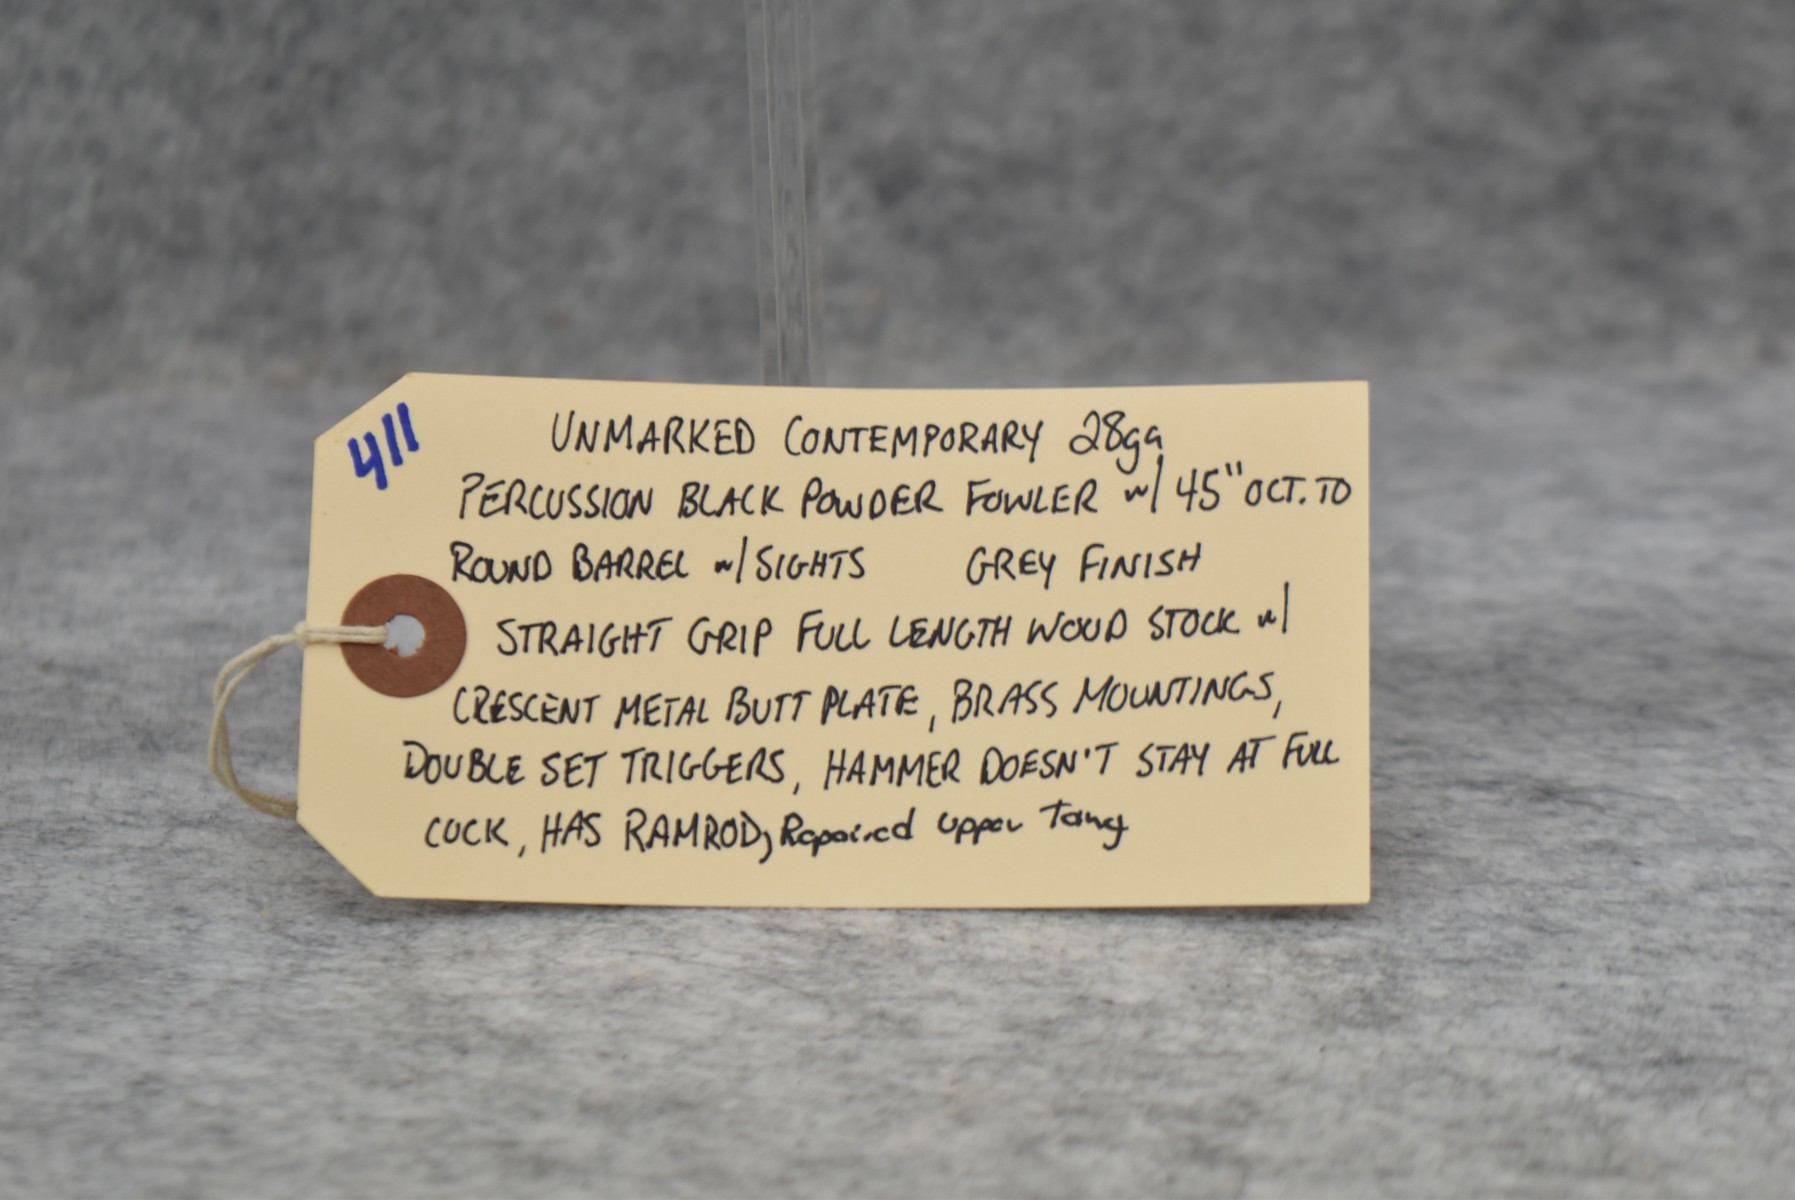 411
UNMARKED CONTEMPORARY 28ga
PERCUSSION BLACK POWDER FOWLER w/ 45" OCT. TO
ROUND BARREL w/ SIGHTS GREY FINISH
STRAIGHT GRIP FULL LENGTH WOOD STOCK w/
CRESCENT METAL BUTT PLATE, BRASS MOUNTINGS,
DOUBLE SET TRIGGERS, HAMMER DOESN'T STAY AT FULL
COCK, HAS RAMROD, Repaired upper Tang